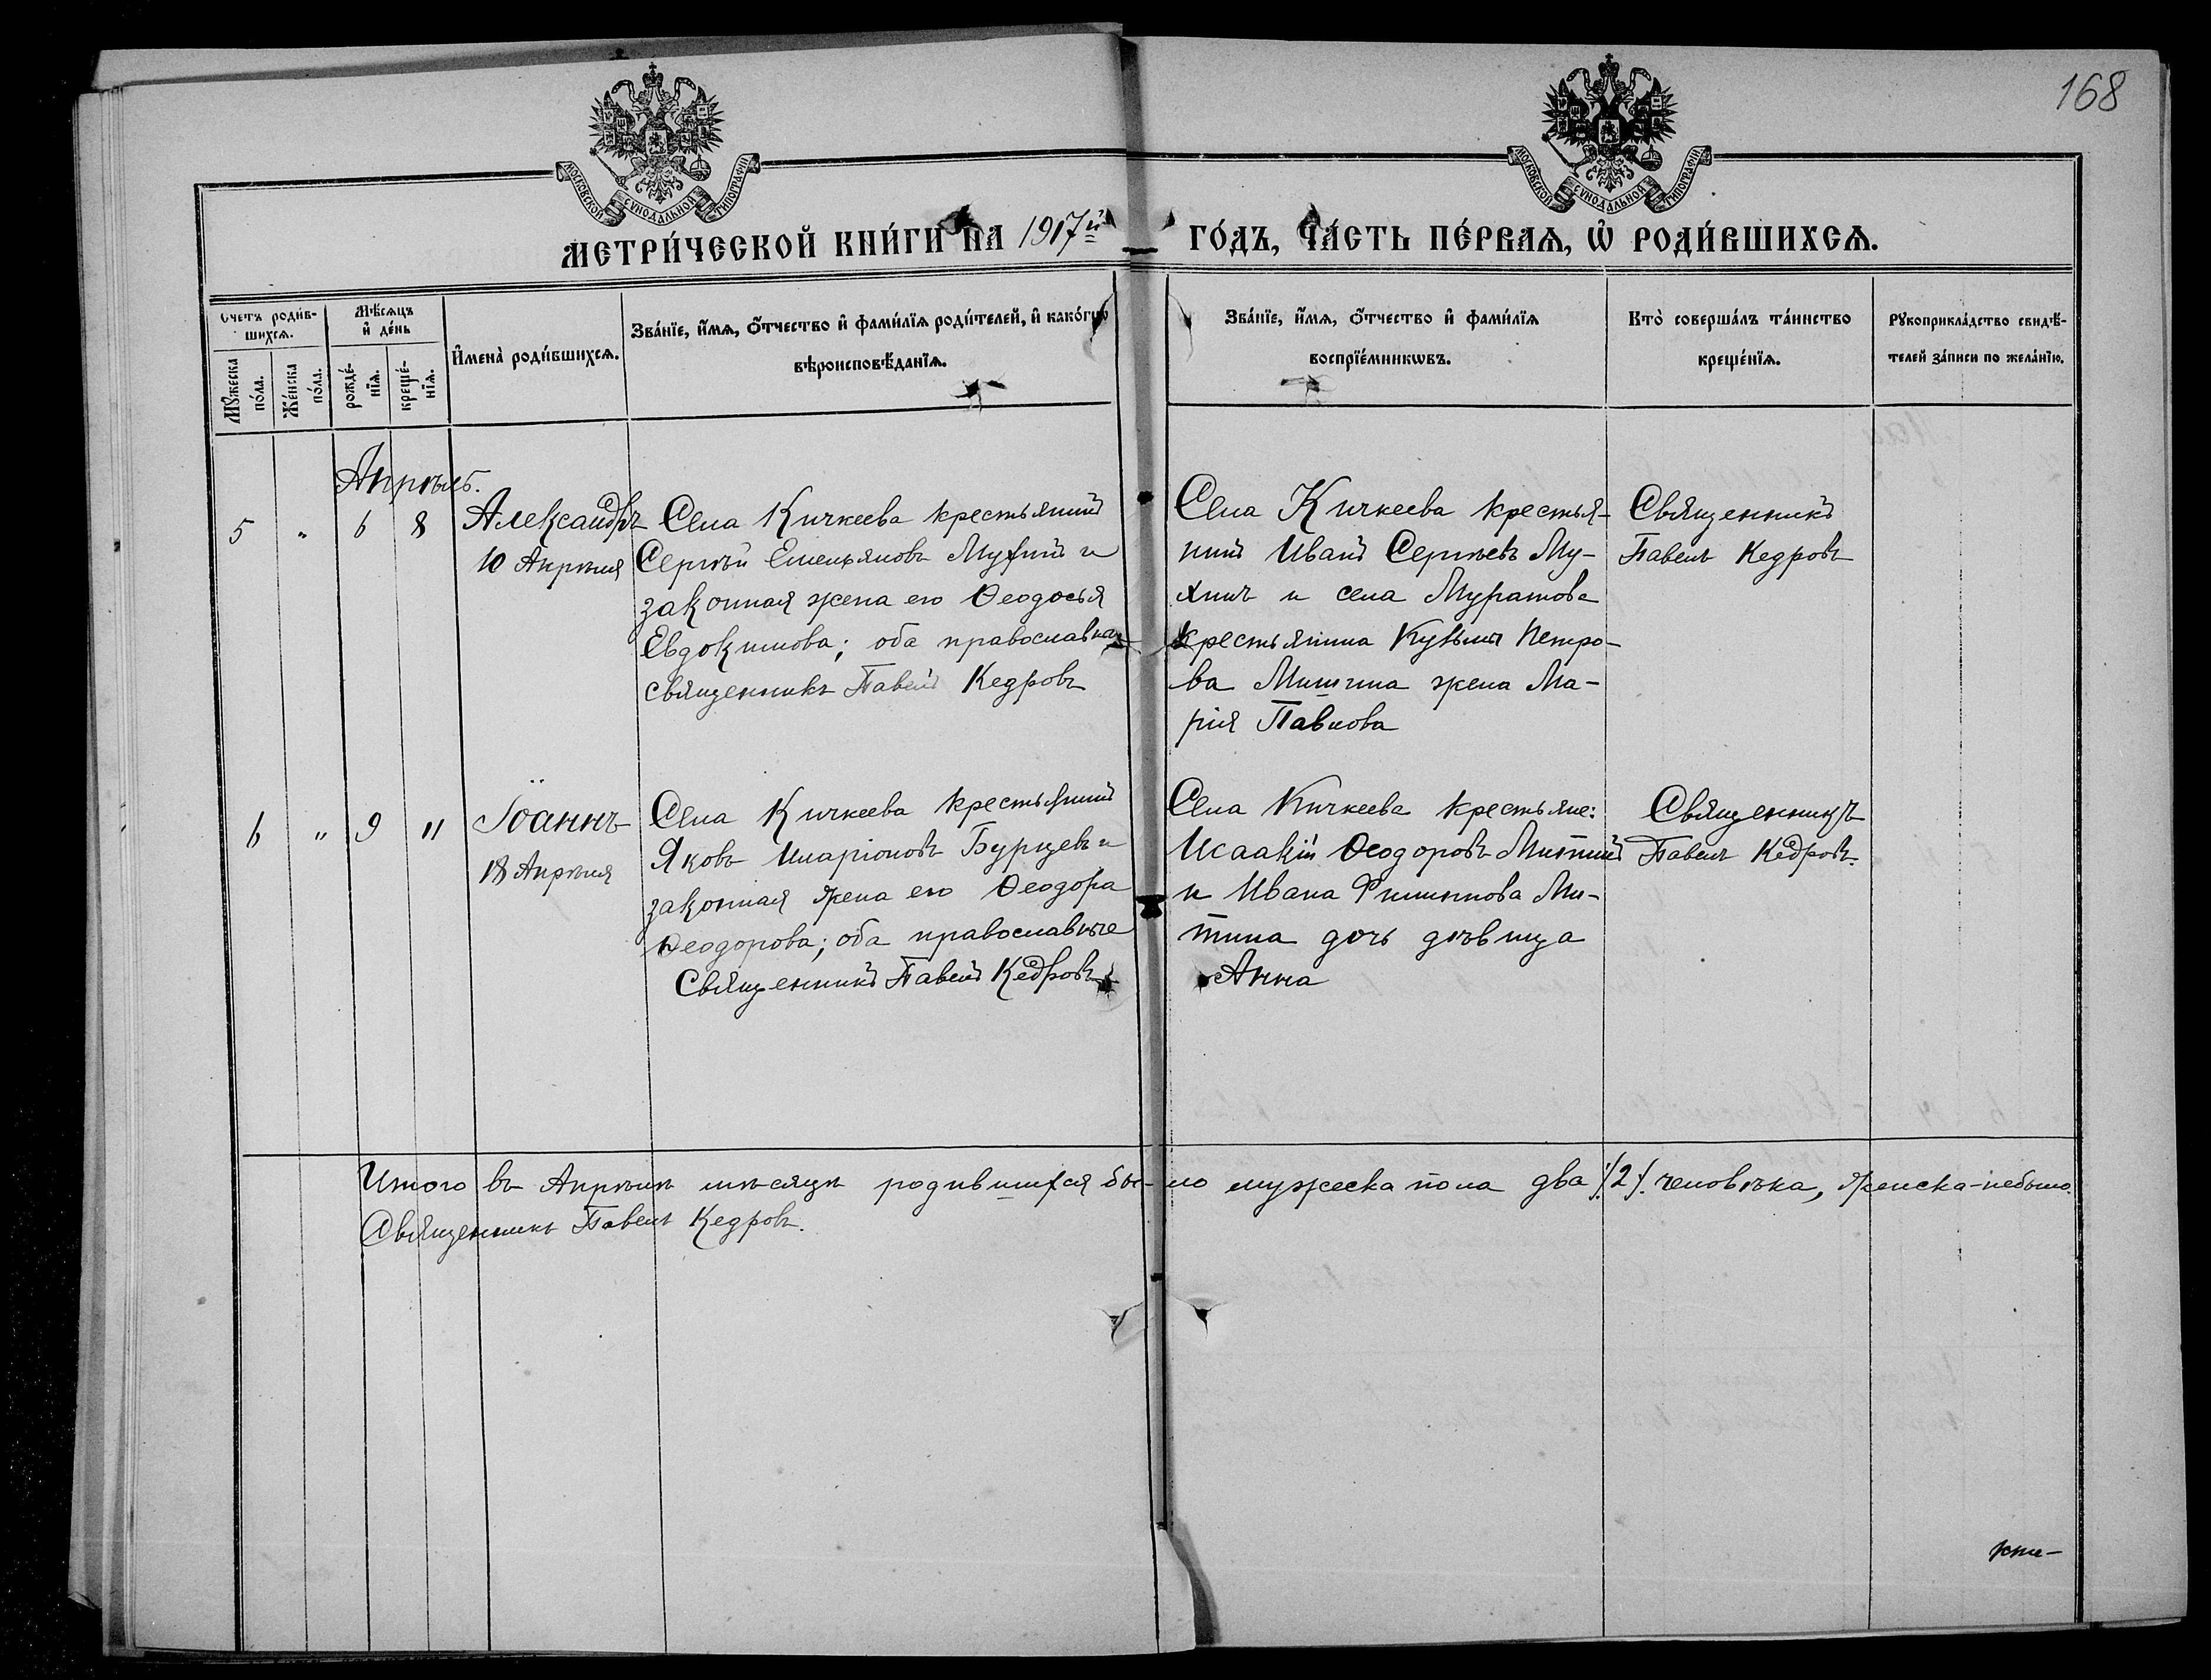 168
МОСКОВСКОЙ СУНОДАЛЬНОЙ ТИПОГРАФІИ
МОСКОВСКОЙ СУНОДАЛЬНОЙ ТИПОГРАФІИ
МЕТРИ́ЧЕСКОЙ КНИ́ГИ НА 1917й ГО́ДЪ, ЧА́СТЬ ПЕ́РВАѦ, Ѡ҆ РОДИ́ВШИХСѦ.
Счетъ роди́в-
шихсѧ.
Мꙋ́жеска
по́ла.
Же́нска
по́ла.
Мѣ́сѧцъ
и҆ де́нь
рожде́-
нїѧ.
креще́-
нїѧ.
И҆мена̀ роди́вшихсѧ.
Зва́нїе, и҆́мѧ, ѻ҆́тчество и҆ фами́лїѧ роди́телей, и҆ како́гѡ
вѣроисповѣ́данїѧ.
Зва́нїе, и҆́мѧ, ѻ҆́тчество и҆ фами́лїѧ
воспрїе́мникѡвъ.
Кто̀ соверша́лъ та́инство
креще́нїѧ.
Рꙋкоприкла́дство свидѣ́-
телей за́писи по жела́нїю.
Апрѣль.
5 " 6 8 Александръ
10 Апрѣля
Села Кичкеева крестьянинъ
Сергѣй Емельяновъ Мухинъ и
законная жена его Ѳеодосья
Евдокимова; оба православна
священникъ Павелъ Кедровъ
Села Кичкеева крестья-
нинъ Иванъ Сергѣевъ Му-
хинъ и села Муратова
крестьянина Кузьмы Петро-
ва Мишина жена Ма-
рія Павлова
Священникъ
Павелъ Кедровъ
6 " 9 11 Іоаннъ
18 Апрѣля
Села Кичкеева крестьянинъ
Яковъ Иларіоновъ Бурцевъ и
законная жена его Ѳеодора
Ѳеодорова; оба православные
Священникъ Павелъ Кедровъ
Села Кичкеева крестьяне:
Исаакій Ѳеодоровъ Митинъ
и Ивана Филиппова Ми-
тина дочь дѣвица
Анна
Священникъ
Павелъ Кедровъ.
Итого въ Апрѣлѣ мѣсяцѣ родившихся бы-ло мужеска пола два /2/. человѣка, женска-небыло.
Священникъ Павелъ Кедровъ.